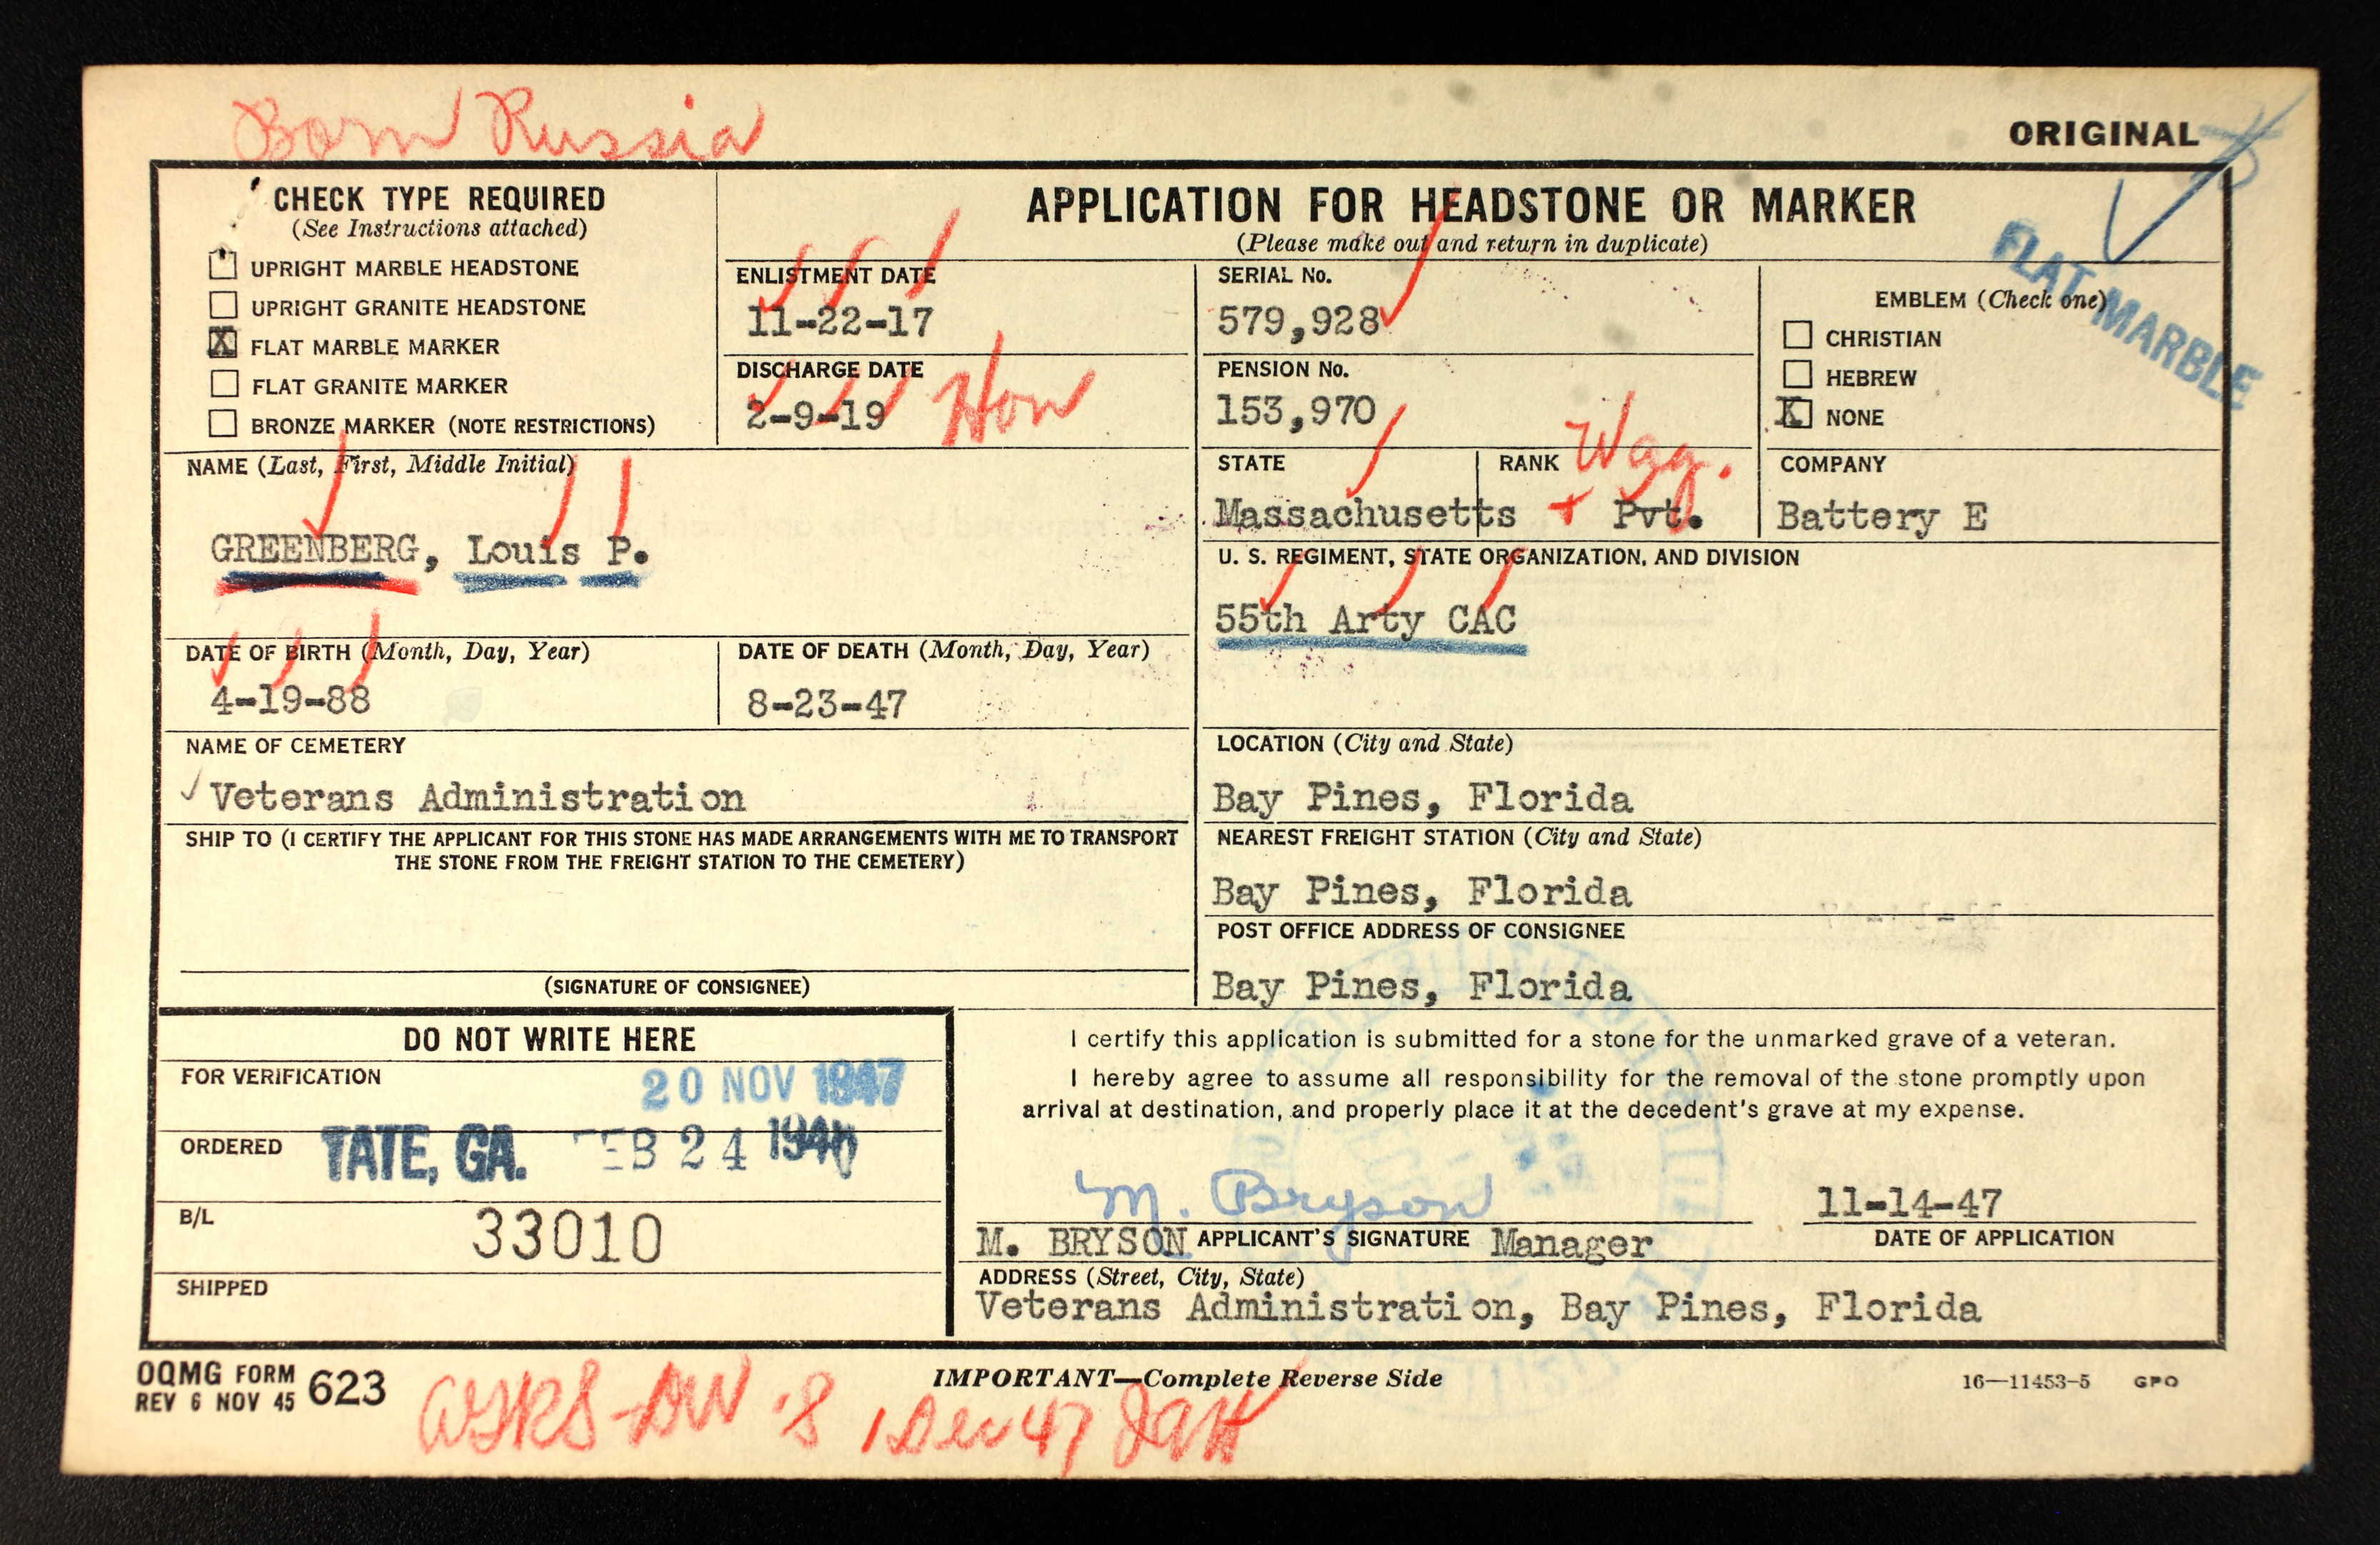 Born Russia
ORIGINAL
CHECK TYPE REQUIRED
(See Instructions attached)
UPRIGHT MARBLE HEADSTONE
UPRIGHT GRANITE HEADSTONE
X FLAT MARBLE MARKER
FLAT GRANITE MARKER
BRONZE MARKER (NOTE RESTRICTIONS)
APPLICATION FOR HEADSTONE OR MARKER
(Please make out and return in duplicate)
ENLISTMENT DATE
11-22-17
DISCHARGE DATE
2-9-19 Hon
SERIAL No.
579,928
PENSION No.
153,970
EMBLEM (Check one)
CHRISTIAN
HEBREW
X NONE
FLAT MARBLE
NAME (Last, First, Middle Initial)
GREENBERG, Louis P.
STATE
Massachusetts
RANK Wag.
+ Pvt.
COMPANY
Battery E
U. S. REGIMENT, STATE ORGANIZATION, AND DIVISION
55th Arty CAC
DATE OF BIRTH (Month, Day, Year)
4-19-88
DATE OF DEATH (Month, Day, Year)
8-23-47
NAME OF CEMETERY
Veterans Administration
LOCATION (City and State)
Bay Pines, Florida
SHIP TO (I CERTIFY THE APPLICANT FOR THIS STONE HAS MADE ARRANGEMENTS WITH ME TO TRANSPORT
THE STONE FROM THE FREIGHT STATION TO THE CEMETERY)
(SIGNATURE OF CONSIGNEE)
NEAREST FREIGHT STATION (City and State)
Bay Pines, Florida
POST OFFICE ADDRESS OF CONSIGNEE
Bay Pines, Florida
DO NOT WRITE HERE
FOR VERIFICATION 20 NOV 1947
ORDERED TATE, GA. FEB 24 194
B/L 33010
SHIPPED
I certify this application is submitted for a stone for the unmarked grave of a veteran.
I hereby agree to assume all responsibility for the removal of the stone promptly upon
arrival at destination, and properly place it at the decedent's grave at my expense.
M. Bryson
11-14-47
M. BRYSON APPLICANT'S SIGNATURE Manager
DATE OF APPLICATION
ADDRESS (Street, City, State)
Veterans Administration, Bay Pines, Florida
OQMG FORM 623
REV 6 NOV 45
IMPORTANT—Complete Reverse Side
16—11453-5 GPO
1 Dec 47